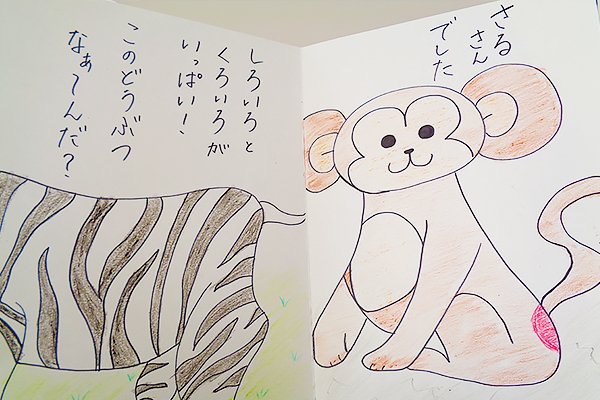 さる
さん
でした
しろいろと
くろいろが
いっぱい!
このどうぶつ
なぁ〜んだ?